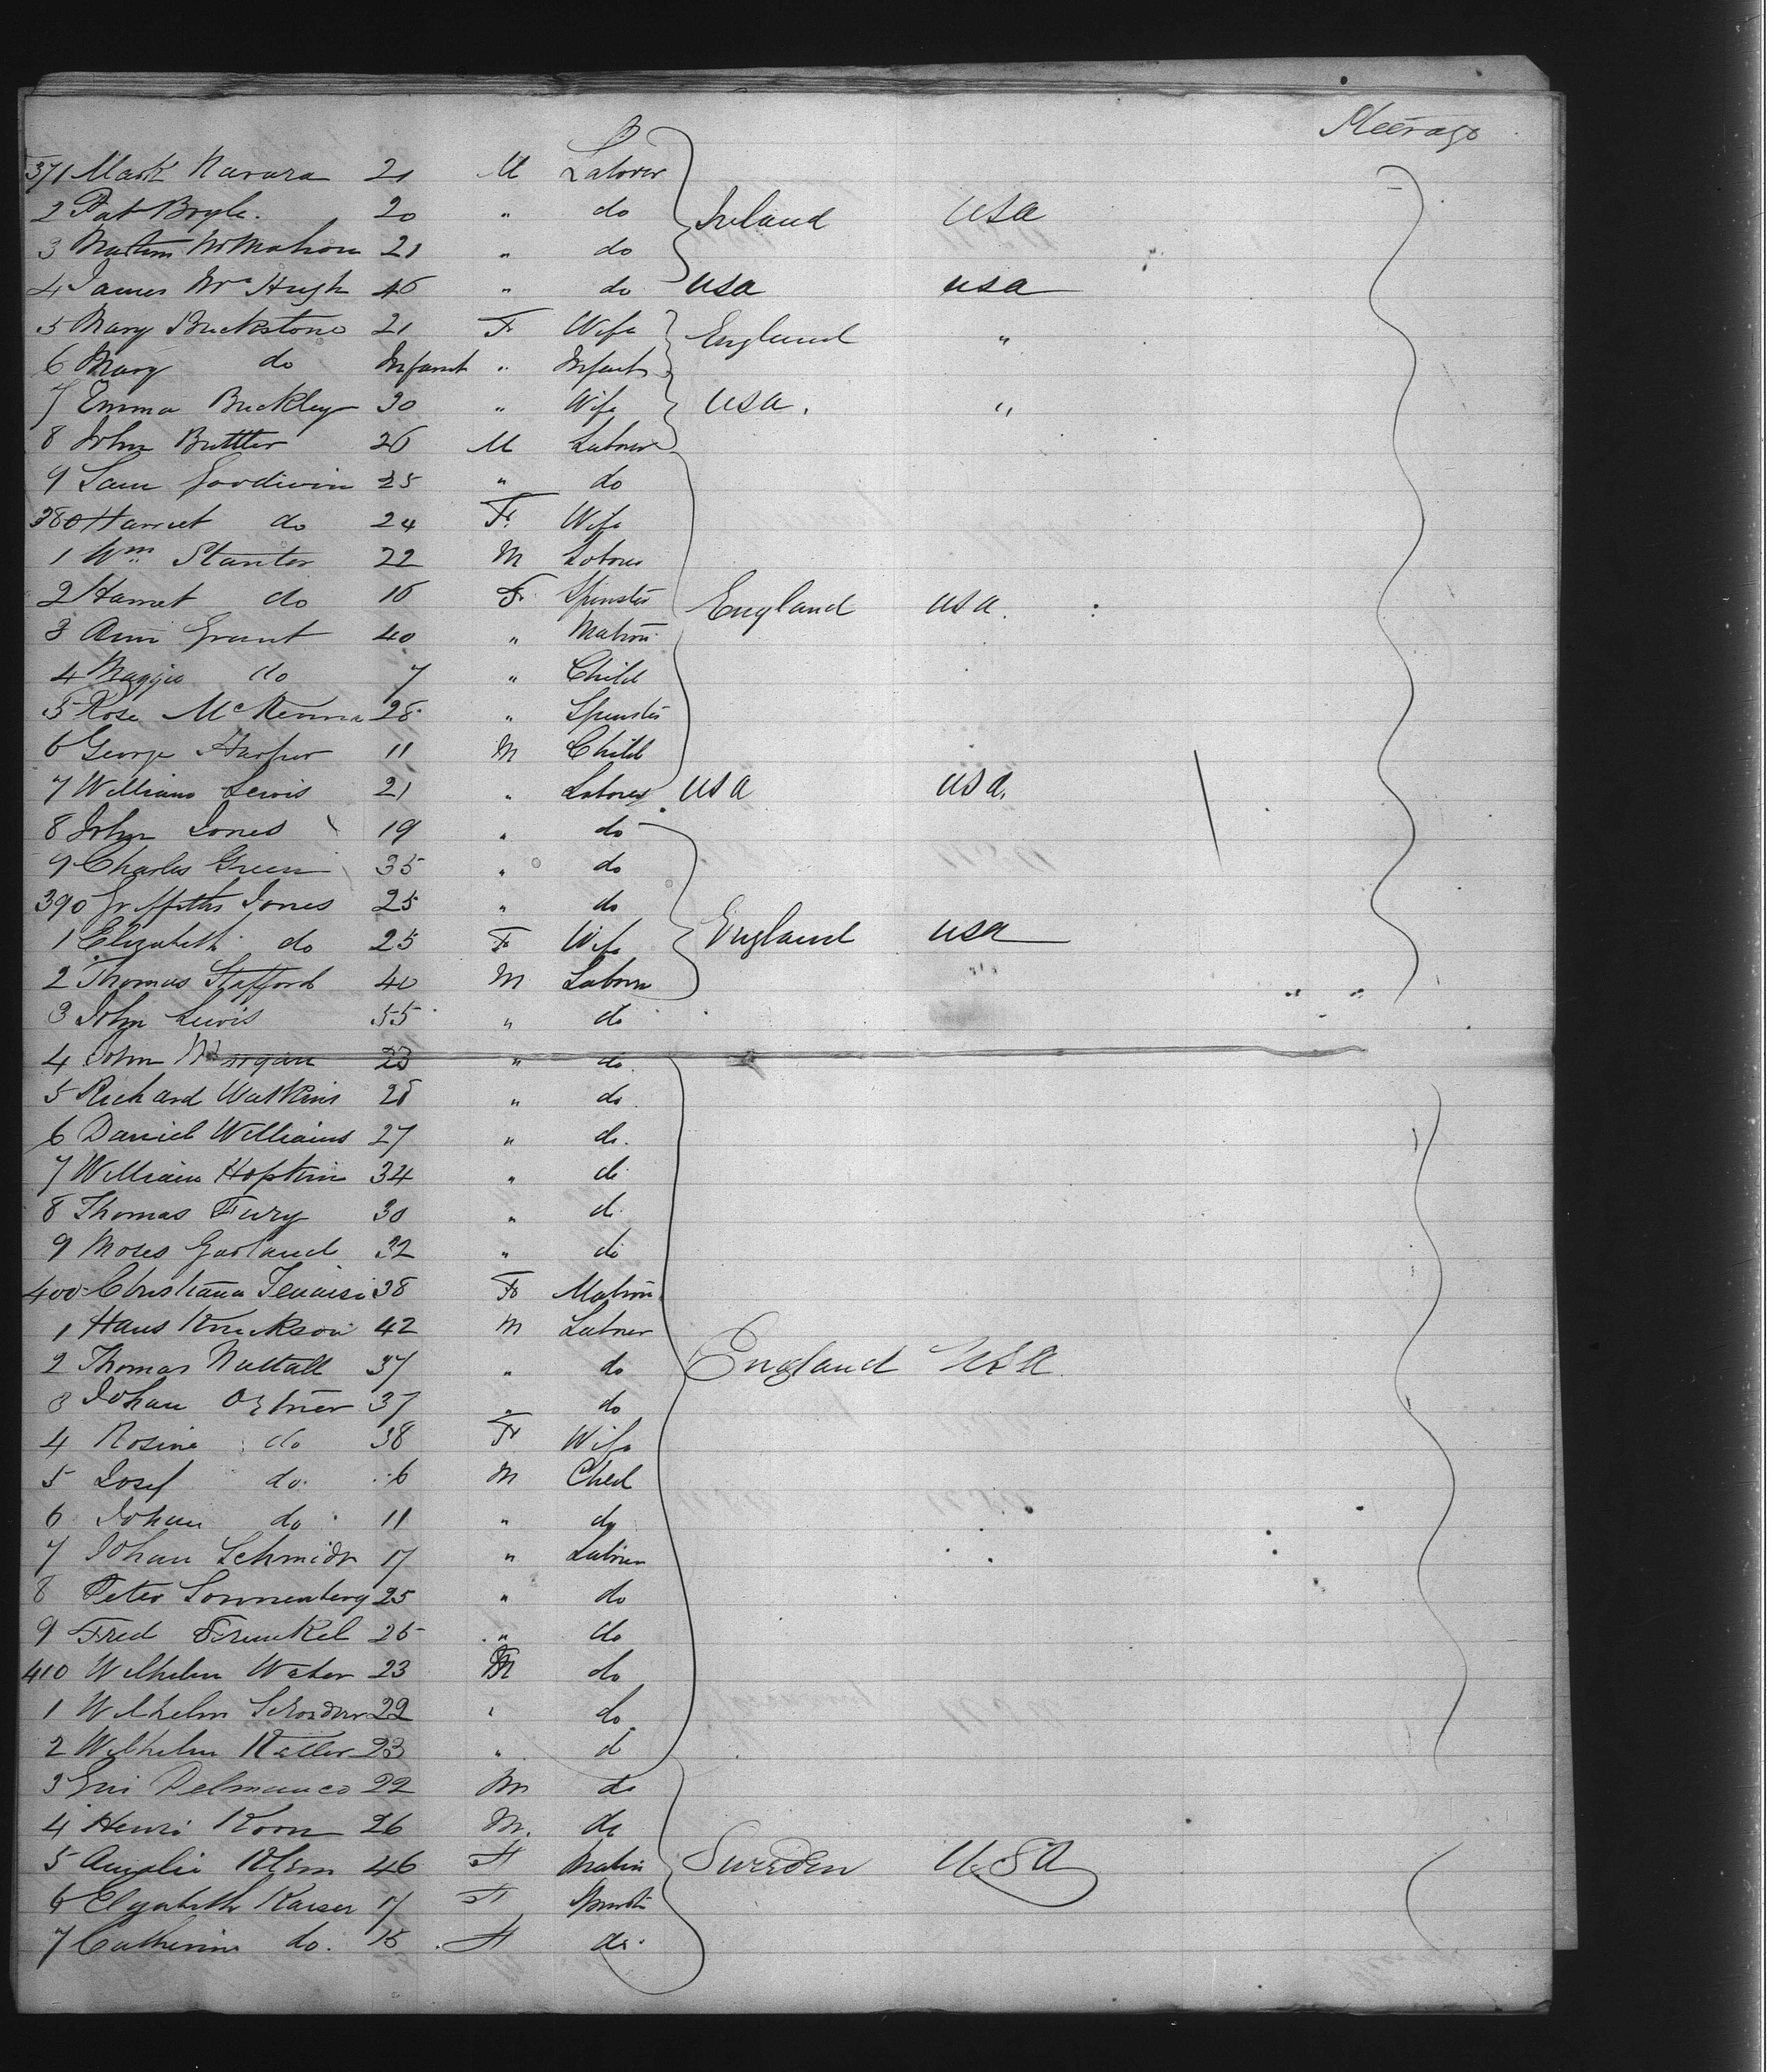 Steerage
371 Mark Navara 21 M Laborer
2 Pat Boyle. 20 " do Ireland USA
3 Martin McMahon 21 " do
4 James Mc Hugh 46 " do USA USA
5 Mary Buckstone 21 F Wife England "
6 Mary do Infant " Infant
7 Emma Buckley 30 " Wife USA. "
8 John Buttler 26 M Laborer
9 Sam Goodwin 25 " do
380 Harriet do 24 F. Wife
1 Wm Stanton 22 M Laborer
2 Harriet do 16 F. Spinster England USA.
3 Ann Grant 40 " Matron
4 Maggie do 7 " Child
5 Rose McKenna 28 " Spinster
6 George Harper 11 M Child
7 William Lewis 21 " Laborer USA USA.
8 John Jones 19 " do
9 Charles Green 35 " do
390 Griffiths Jones 25 " do
1 Elizabeth do 25 F Wife England USA
2 Thomas Stafford 40 M Laborer
3 John Lewis 55 " do
4 John Morgan 23 " do.
5 Richard Watkins 28 " do
6 Daniel Williams 27 " do.
7 William Hopkin 34 " do
8 Thomas Fury 30 " do
9 Moses Garland 32 " do
400 Christiana 38 F Matron
1 Hans 42 M Laborer
2 Thomas Nuttall 37 " do England USA.
3 Johan 37 " do
4 Rosina do 38 F Wife
5 Josef do. 6 M Child
6 Johan do 11 " do
7 Johan Schmidt 17 " Laborer
8 Peter Sonnenberg 25 " do
9 Fred Frenkel 25 " do
410 Wilhelm 23 M do
1 Wilhelm 22 " do
2 Wilhelm Keller 23 " do
3 Delmanco 22 M do
4 Henri Koon 26 M. do
5 Amalie 46 F Matron Sweden U.S.A
6 Elizabeth Kaiser 17 F Spinster
7 Catherine do. 15 F do.